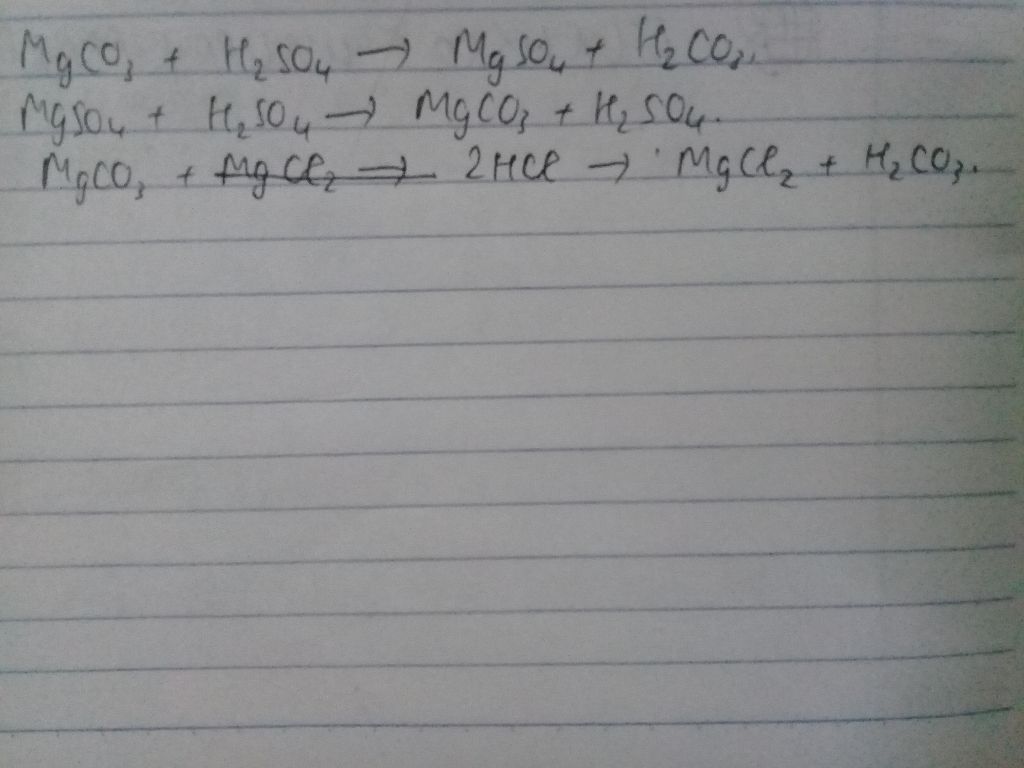 MgCO₃ + H₂SO₄ → MgSO₄ + H₂CO₃.
MgSO₄ + H₂SO₄ → MgCO₃ + H₂SO₄.
MgCO₃ + ~~MgCl₂ →~~ 2HCl → MgCl₂ + H₂CO₃.